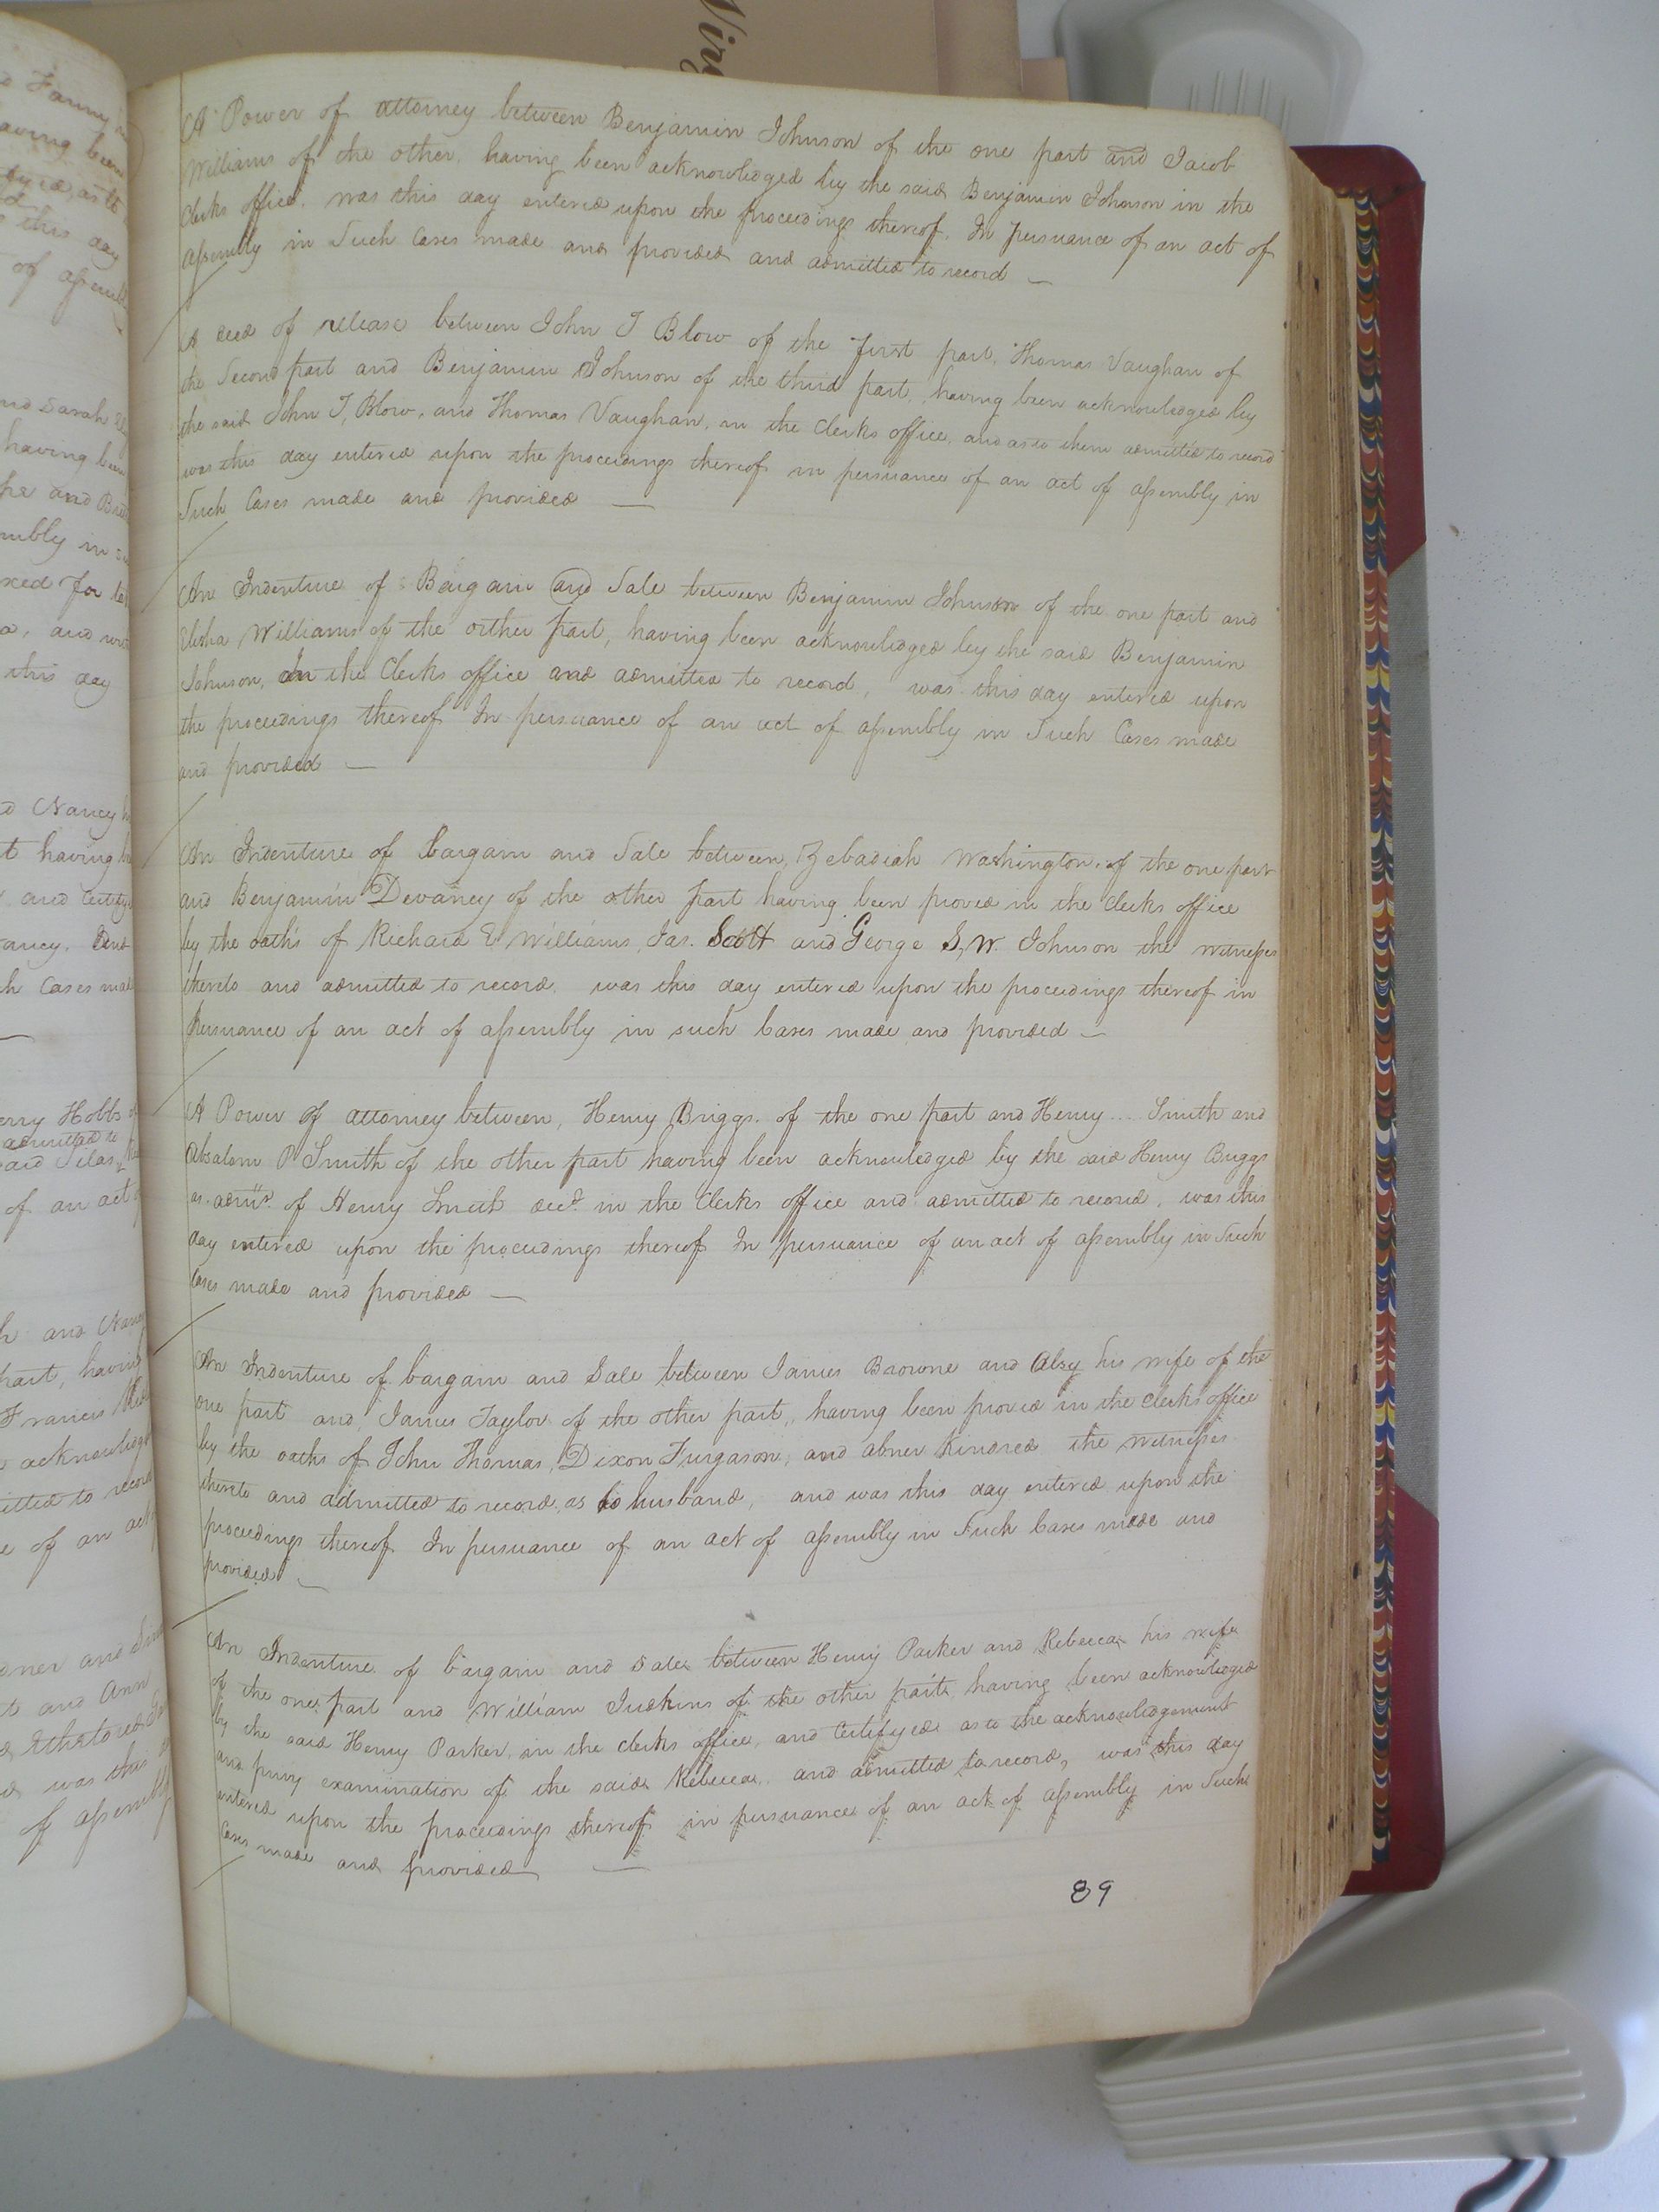 Virg
A Power of attorney between Benjamin Johnson of the one part and Jacob
Williams of the other, having been acknowledged by the said Benjamin Johnson in the
Clerks office, was this day entered upon the proceedings thereof. In persuance of an act of
assembly in Such Cases made and provided and admitted to record —
A deed of release between John T Blow of the first part, Thomas Vaughan of
the Second part and Benjamin Johnson of the third part, having been acknowledged by
the said John T, Blow, and Thomas Vaughan, in the Clerks office, and as to them admitted to record
was this day entered upon the proceedings thereof in persuance of an act of assembly in
Such Cases made and provided —
An Indenture of Bargain and Sale between Benjamin Johnson of the one part and
Elisha Williams of the orther part, having been acknowledged by the said Benjamin
Johnson, In the Clerks office and admitted to record, was this day entered upon
the proceedings thereof In persuance of an act of assembly in Such Cases made
and provided —
An Indenture of bargain and Sale between, Zebadiah Washington of the one part
and Benjamin Devaney of the other part having been proved in the Clerks office
by the oaths of Richard E Williams, Jas. Scott and George S, W. Johnson the witnesses
thereto and admitted to record, was this day entered upon the proceedings thereof in
Persuance of an act of assembly in such Cases made and provided —
A Power of attorney between, Henry Briggs of the one part and Henry ... Smith and
Absalom P Smith of the other part having been acknowledged by the said Henry Briggs
as admr. of Henry Smith decd. in the Clerks office and admitted to record, was this
day entered upon the proceedings thereof In persuance of an act of assembly in Such
Cases made and provided —
An Indenture of bargain and Sale between James Browne and Alsy his wife of the
one part and, James Taylor of the other part, having been proved in the Clerks office
by the oaths of John Thomas, Dixon Furgason, and abner Kindred the witnesses
thereto and admitted to record, as to husband, and was this day entered upon the
proceedings thereof In persuance of an act of assembly in Such Cases made and
provided —
An Indenture of bargain and Sale between Henry Parker and Rebecca his wife
of the one part and William Judkins of the other part having been acknowledged
by the said Henry Parker, in the clerks office, and Certifyed as to the acknowledgement
and privy examination of the said Rebecca, and admitted to record, was this day
entered upon the proceedings thereof in persuance of an act of assembly in Such
Cases made and provided —
89